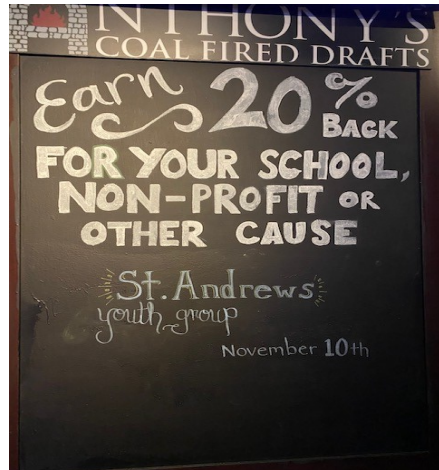 NTHONY'S
COAL FIRED DRAFTS
Earn 20%
BACK
FOR YOUR SCHOOL,
NON-PROFIT OR
OTHER CAUSE
St. Andrews
youth group
November 10th